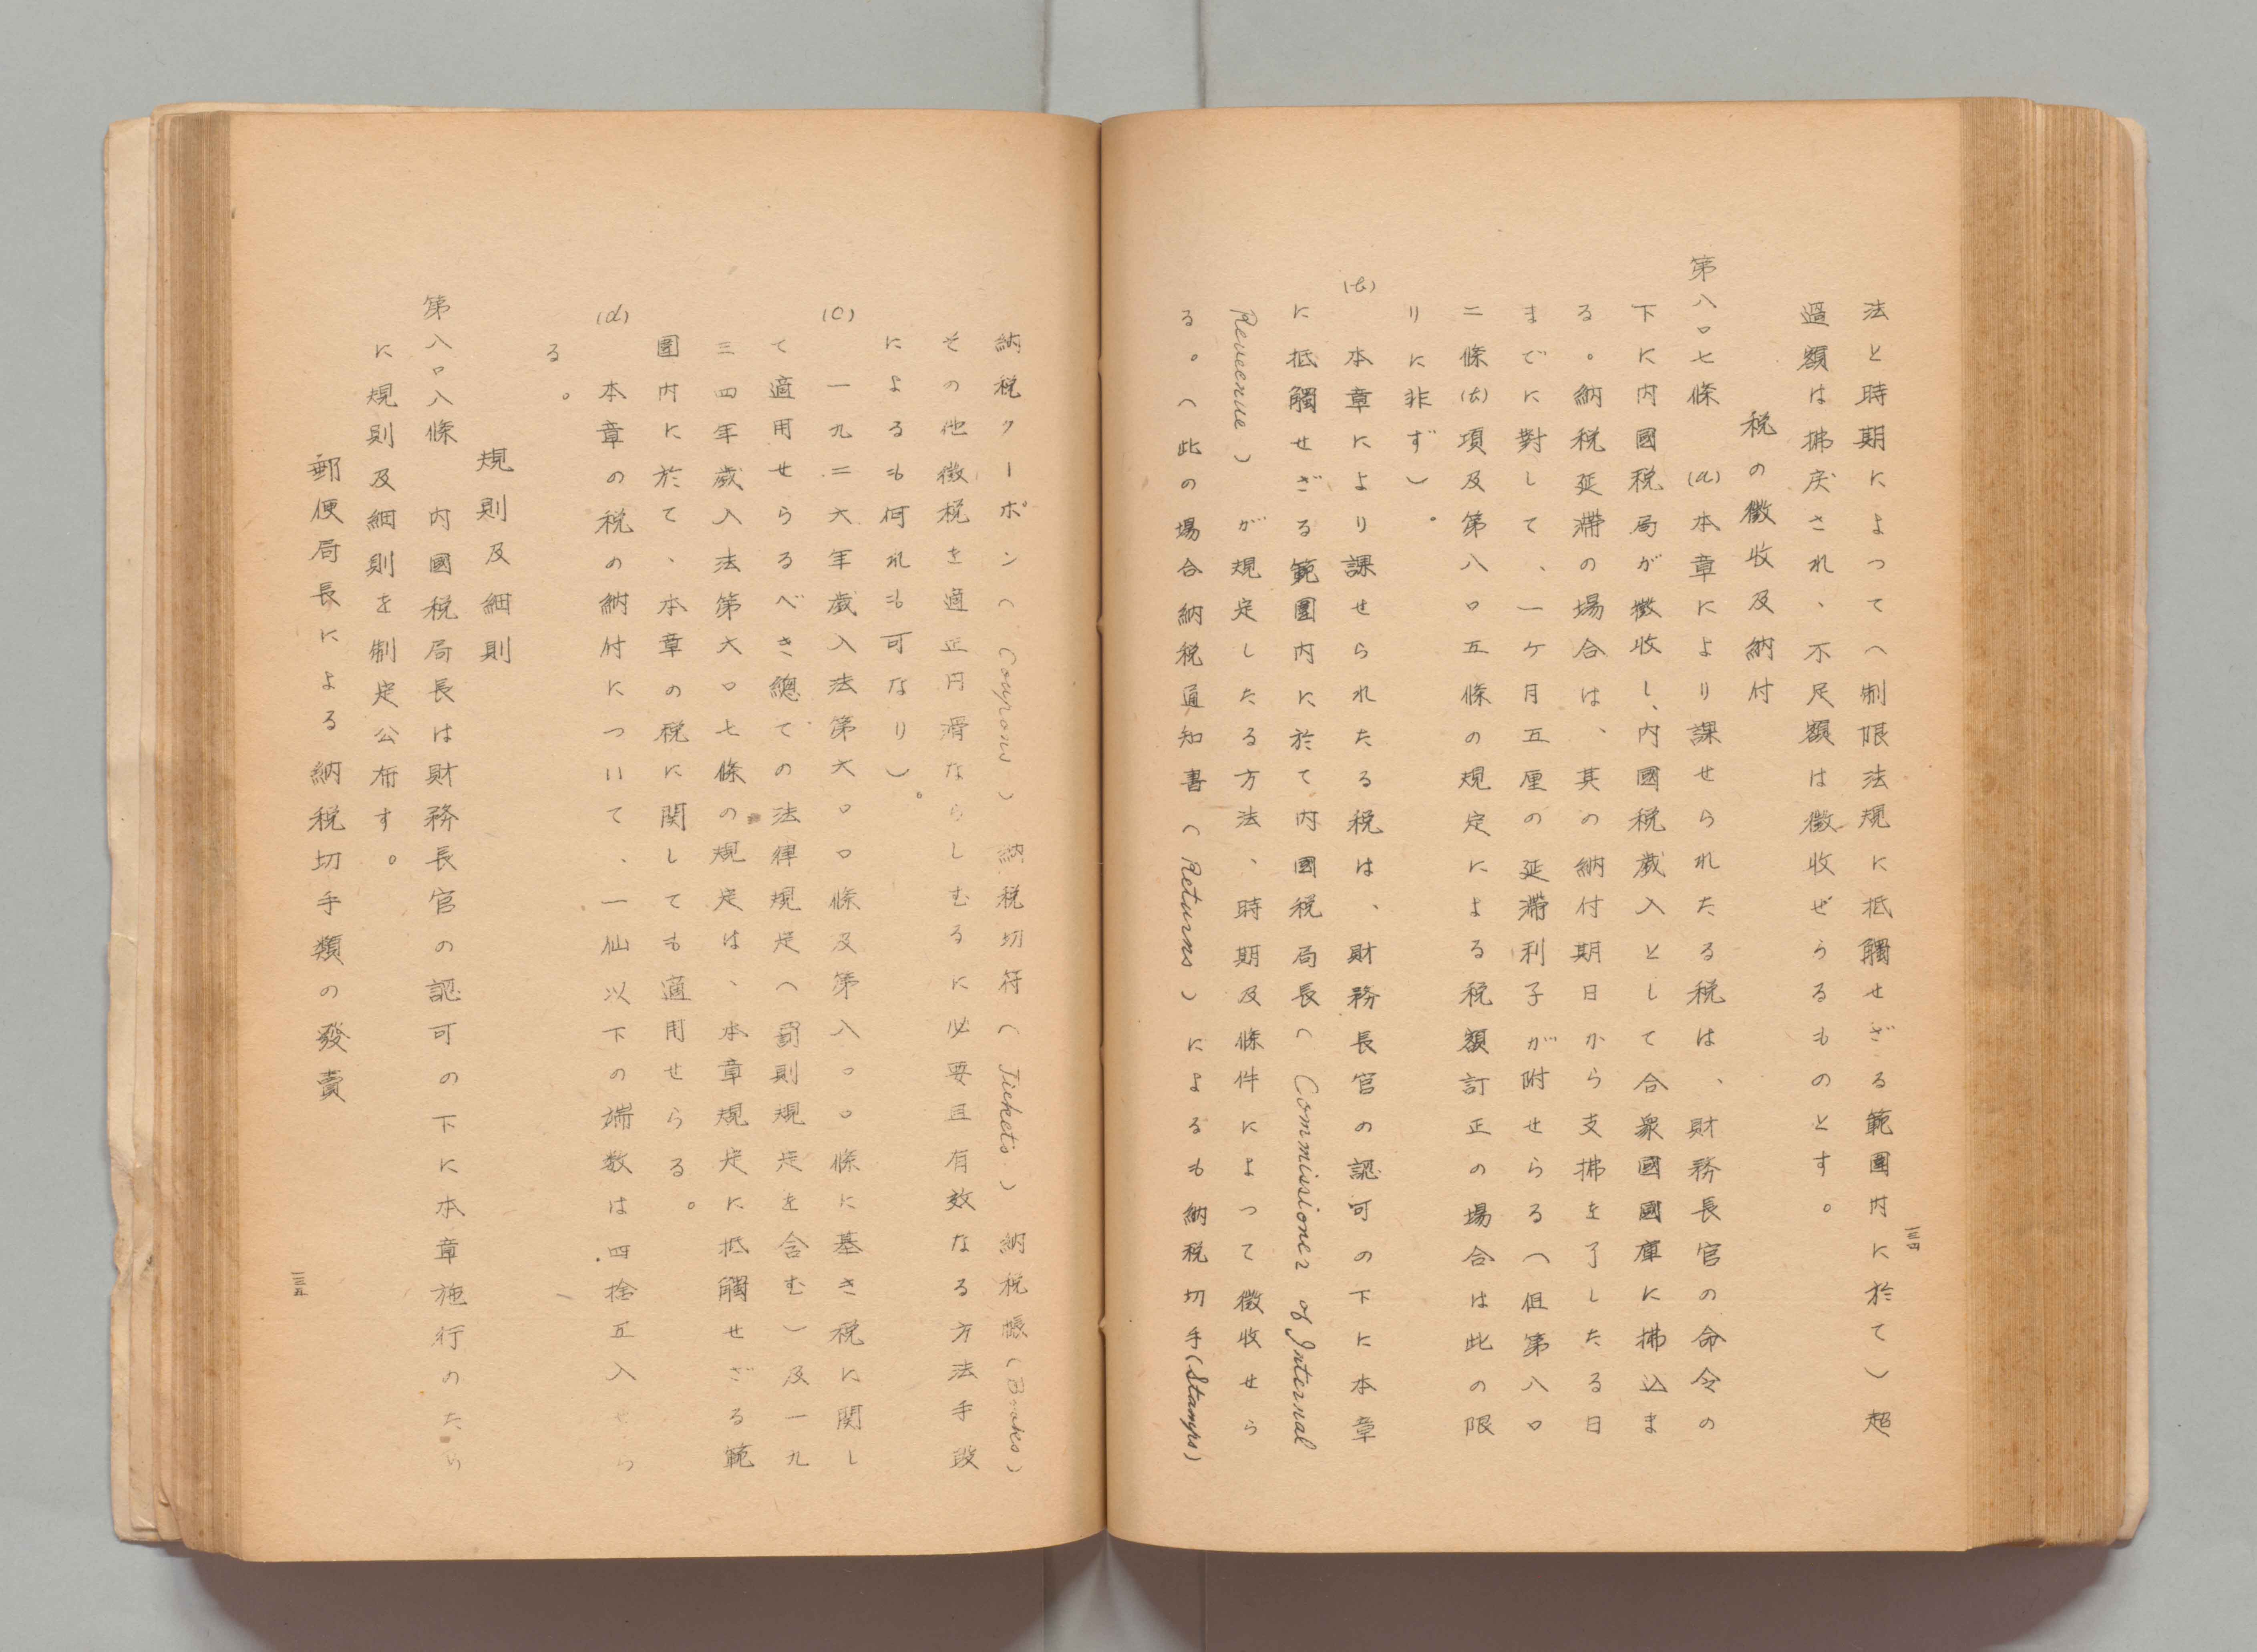 一三四
法と時期によつて（制限法規に抵觸せざる範圍内に於て）超
過額は拂戻され、不足額は徴收ぜらるものとす。
税の徴收及納付
第八〇七條 (a)本章により課せられたる税は、財務長官の命令の
下に内國税局が徴收し、内國税歳入として合衆國國庫に拂込ま
る。納税延滯の場合は、其の納付期日から支拂を了したる日
までに對して、一ケ月五厘の延滯利子が附せらる（但第八〇
二條(b)項及第八〇五條の規定による税額訂正の場合は此の限
りに非ず）。
(b) 本章により課せられたる税は、財務長官の認可の下に本章
に抵觸せざる範圍内に於て内國税局長（Commissioner of Internal
Reveenue）が規定したる方法、時期及條件によつて徴收せら
る。（此の場合納税通知書（Returns）によるも納税切手（Stamps）
納税クーポン（Coupons）納税切符（Tickets）納税帳（Books）
その他徴税を適正円滑ならしむるに必要且有效なる方法手段
によるも何れも可なり）。
(c) 一九二六年歳入法第六〇〇條及第八〇〇條に基き税に関し
て適用せらるべき總ての法律規定（罰則規定を含む）及一九
三四年歳入法第六〇七條の規定は、本章規定に抵觸せざる範
圍内に於て、本章の税に関しても適用せらる。
(d) 本章の税の納付について、一仙以下の端数は四捨五入せら
る。
規則及細則
第八〇八條 内國税局長は財務長官の認可の下に本章施行のため
に規則及細則を制定公布す。
郵便局長による納税切手類の發賣
一三五